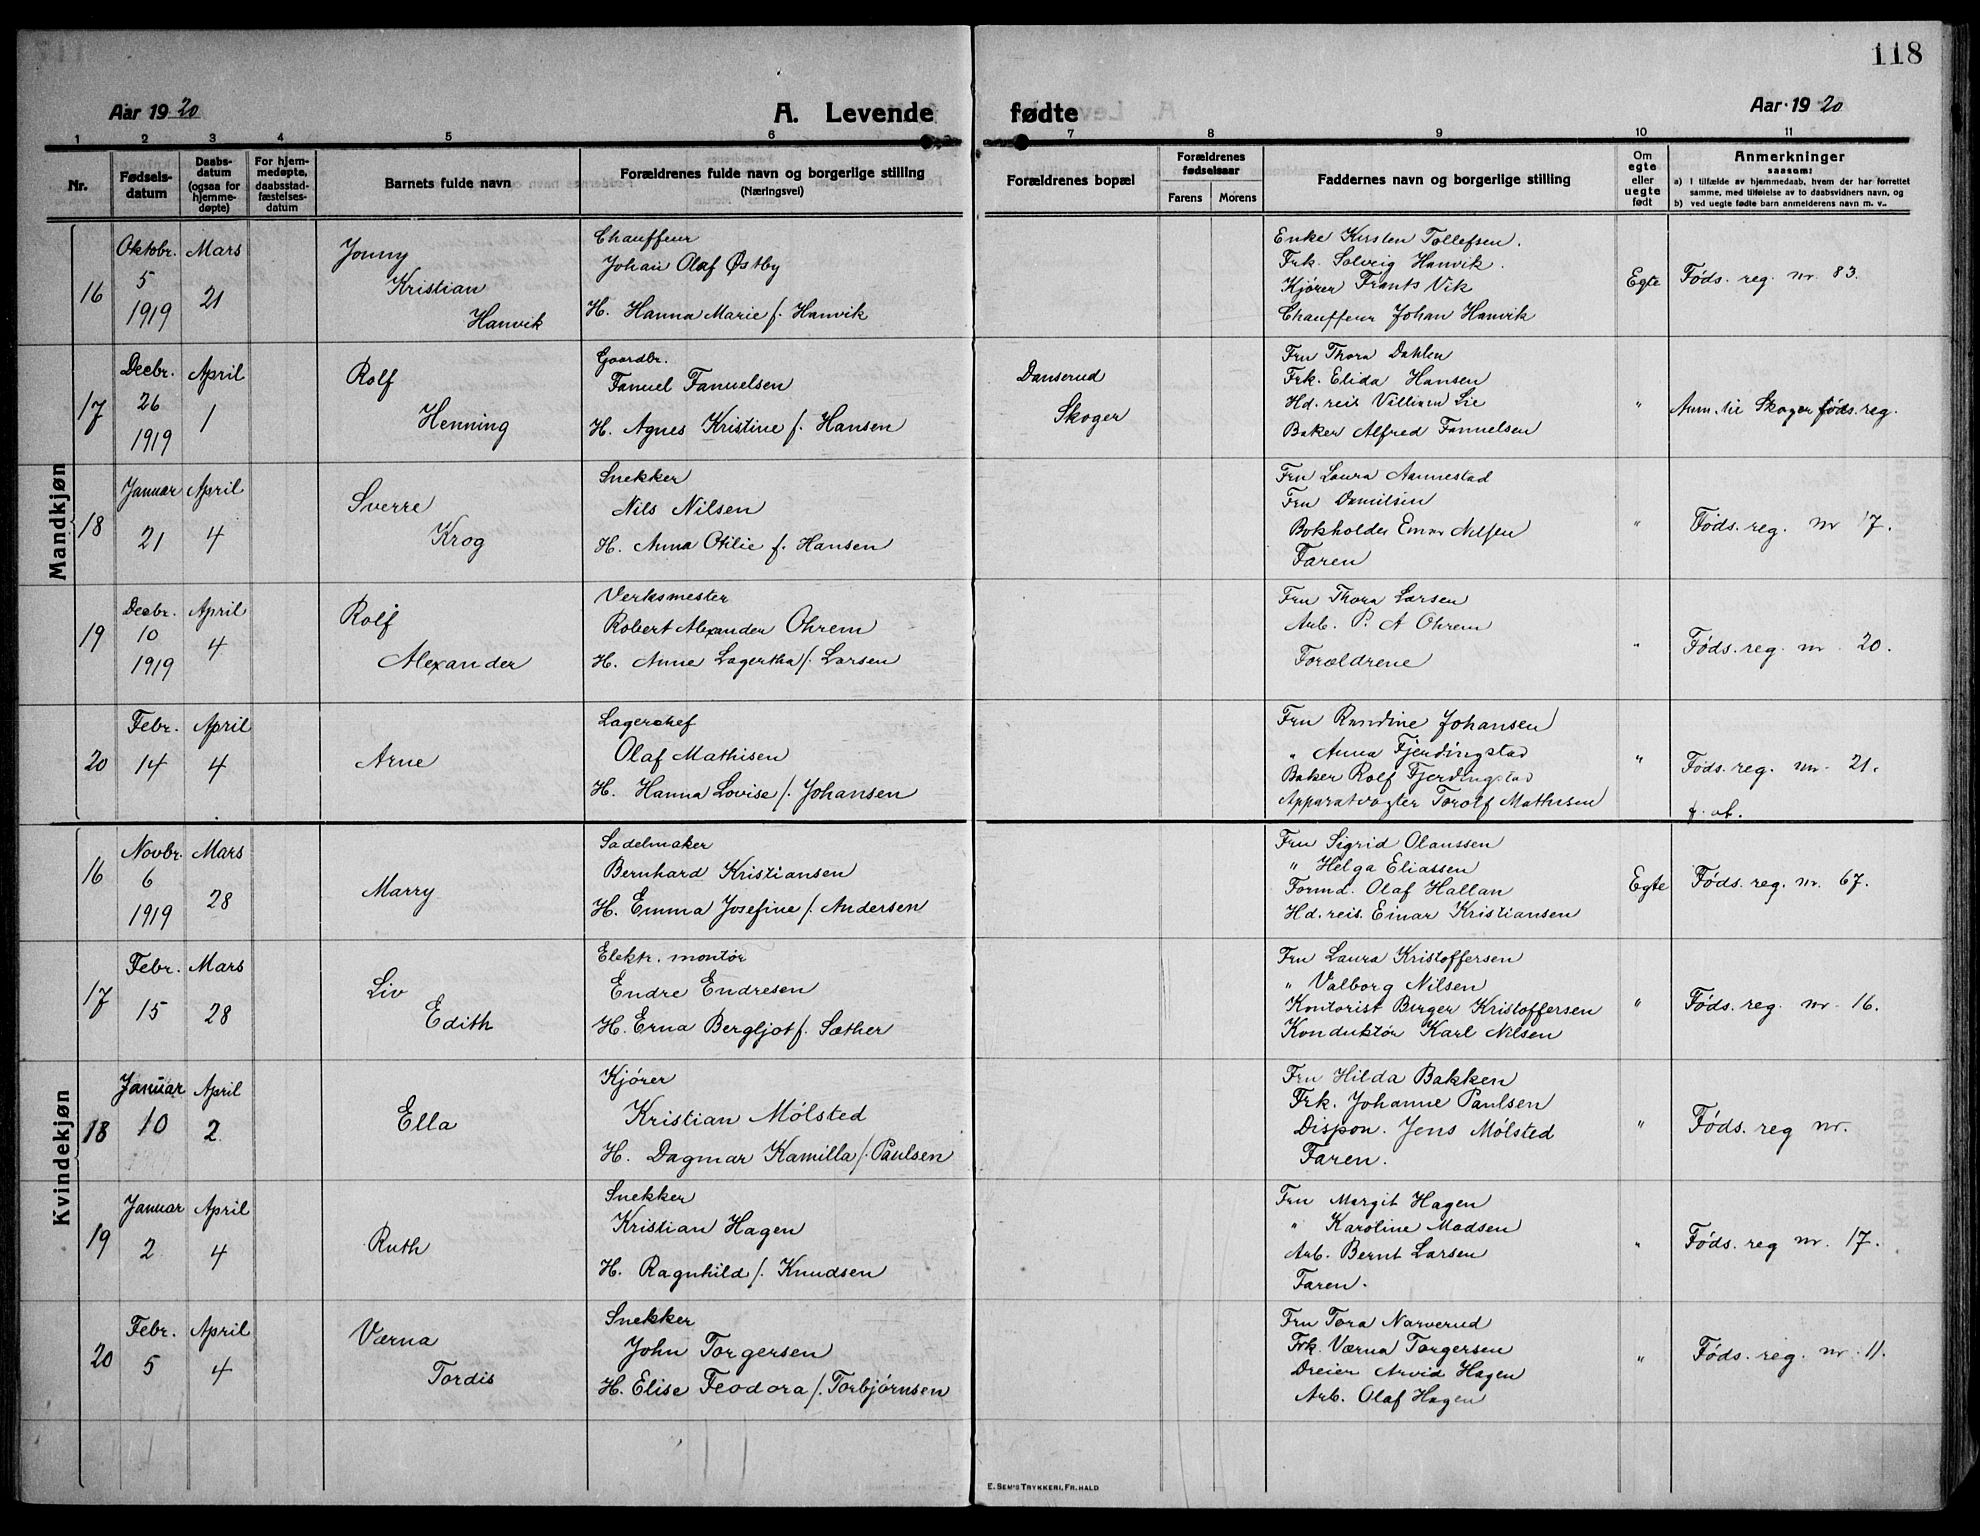 118
Aar 1920 A. Levende fødte Aar 1920
1 2 3 4 5 6 7 8 9 10 11
Nr. Fødsels-datum Daabs-datum (ogsaa for hjemme-døpte) For hjem-medøpte, daabsstad-fæstelses-datum Barnets fulde navn Forældrenes fulde navn og borgerlige stilling (Næringsvei) Forældrenes bopæl Forældrenes fødselsaar Farens Morens Faddernes navn og borgerlige stilling Om egte eller uegte født Anmerkninger saasom:
a) I tilfælde av hjemmedaab, hvem der har forrettet samme, med tilføielse av to daabsvidners navn, og
b) ved uegte fødte barn anmelderens navn m. v.
Mandkjøn
16 Oktobr. 5 1919 Mars 21
Jonny
Kristian
Hanvik
Chauffeur
Johan Olaf Østby
H. Hanna Marie f. Hanvik
Enke Kirsten Tollefsen.
Frk. Solveig Hanvik.
Kjører Frants Vik
Chauffeur Johan Hanvik
Egte Føds. reg. nr. 83.
17 Decbr. 26 1919 April 1
Rolf
Henning
Gaardbr.
Fanuel Fanuelsen
H. Agnes Kristine f. Hansen
Danserud
Skoger
Fru Thora Dahlen
Frk. Elida Hansen
Hd. reis Villiam Lie
Baker Alfred Fanuelsen
" Anm. til Skoger føds. reg.
18 Januar 21 April 4
Sverre
Krog
Snekker
Nils Nilsen
H. Anna Otilie f. Hansen
Fru Laura Aannestad
Fru Danielsen
Bokholder Einar Nilsen
Faren
" Føds. reg. nr 17.
19 Decbr. 10 1919 April 4
Rolf
Alexander
Verksmester
Robert Alexander Ohrem
H. Anne Lagertha f. Larsen
Fru Thora Larsen
Arb. P. A Ohrem
Forældrene
" Føds. reg. nr. 20.
20 Febr. 14 April 4
Arne
Lagerchef
Olaf Mathisen
H. Hanna Lovise f. Johansen
Fru Randine Johansen
" Anna Fjerdingstad
Baker Rolf Fjerdingstad
Apparatvogter Torolf Mathisen
" Føds. reg. nr. 21.
Kvindekjøn
16 Novbr. 6 1919 Mars 28
Marry
Sadelmaker
Bernhard Kristiansen
H. Emma Josefine f. Andersen
Fru Sigrid Olaussen
" Helga Eliassen
Formd. Olaf Hallan
Hd. reis. Einar Kristiansen
Egte Føds. reg. nr. 67.
17 Febr. 15 Mars 28
Liv
Edith
Elektr. montør
Endre Endresen
H. Erna Bergljot f. Sæther
Fru Laura Kristoffersen
" Valborg Nilsen
Kontorist Birger Kristoffersen
Konduktør Karl Nilsen
" Føds. reg. nr. 16.
18 Januar 10 April 2
Ella
Kjører
Kristian Mølsted
H. Dagmar Kamilla f. Paulsen
Fru Hilda Bakken
Frk. Johanne Paulsen
Dispon. Jens Mølsted
Faren.
" Føds. reg nr.
19 Januar 2 April 4
Ruth
Snekker
Kristian Hagen
H. Ragnhild f. Knudsen
Fru Margit Hagen
" Karoline Madsen
Arb. Bernt Larsen
Faren.
" Føds. reg nr. 17.
20 Febr. 5 April 4
Værna
Tordis
Snekker
John Torgersen
H. Elise Feodora f. Torbjørnsen
Fru Tora Narverud
Frk. Værna Torgersen
Dreier Arvid Hagen
Arb. Olaf Hagen
" Føds. reg. nr. 11.
E. SEM'S TRYKKERI, FR.HALD